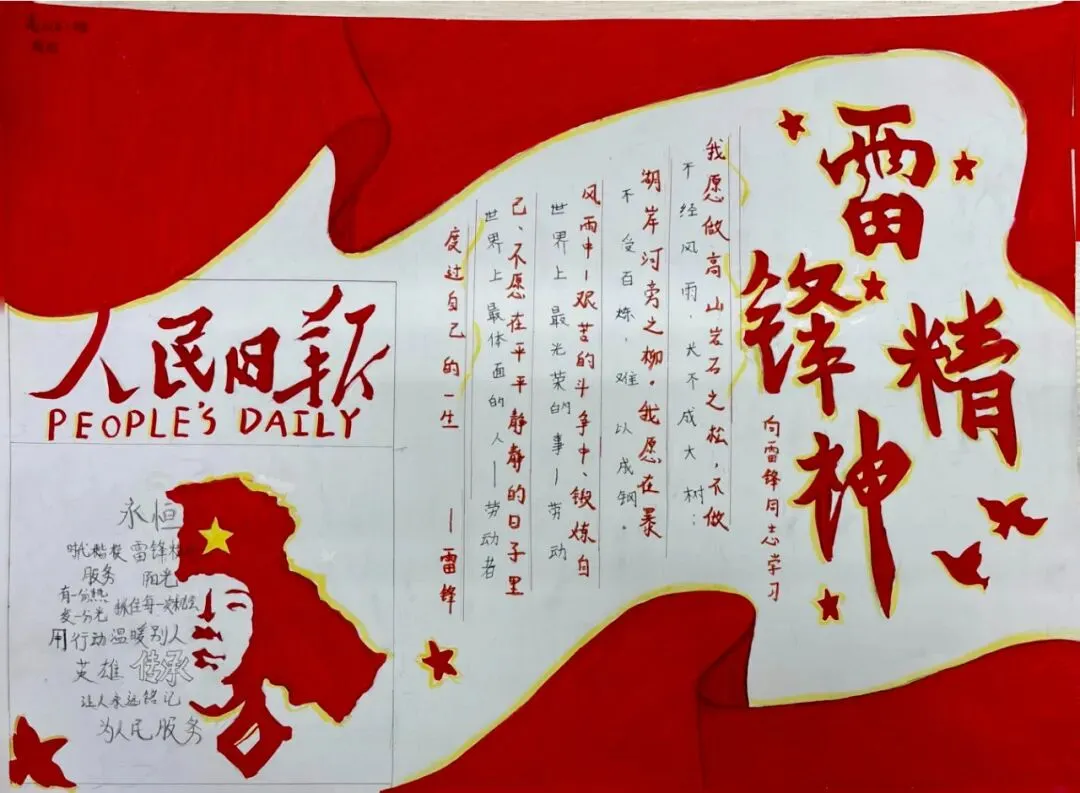 雷
锋
精
神
向雷锋同志学习
我愿做高山岩石之松,不做
不经风雨,长不成大树;
湖岸河旁之柳。我愿在暴
不受百炼,难以成钢。
风雨中—艰苦的斗争中、锻炼自
世界上最光荣的事—劳动
己、不愿在平平静静的日子里
世界上最体面的人—劳动者
度过自己的一生
—雷锋
人民日报
PEOPLE'S DAILY
永恒
时代楷模 雷锋
服务 阳光
有一分热
发一分光 抓住每一次机会
用行动温暖别人
英雄 传承
让人永远铭记
为人民服务